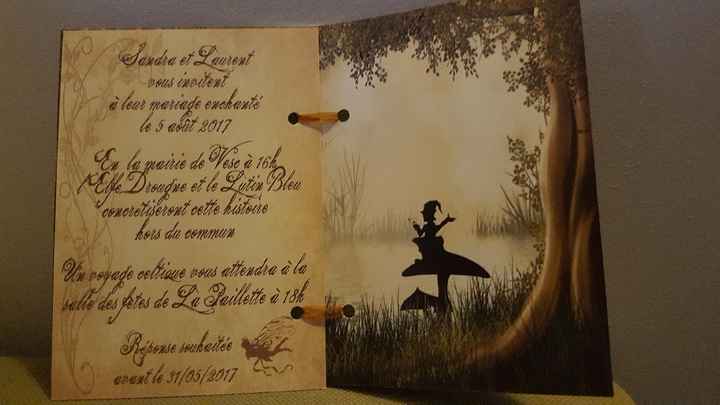 Sandra et Laurent
vous invitent
à leur mariage enchanté
le 5 août 2017
En la mairie de Vesc à 16h
l'Elfe Drougne et le Lutin Bleu
concretiseront cette histoire
hors du commun
Un voyage celtique vous attendra à la
salle des fêtes de La Paillette à 18h
Réponse souhaitée
avant le 31/05/2017